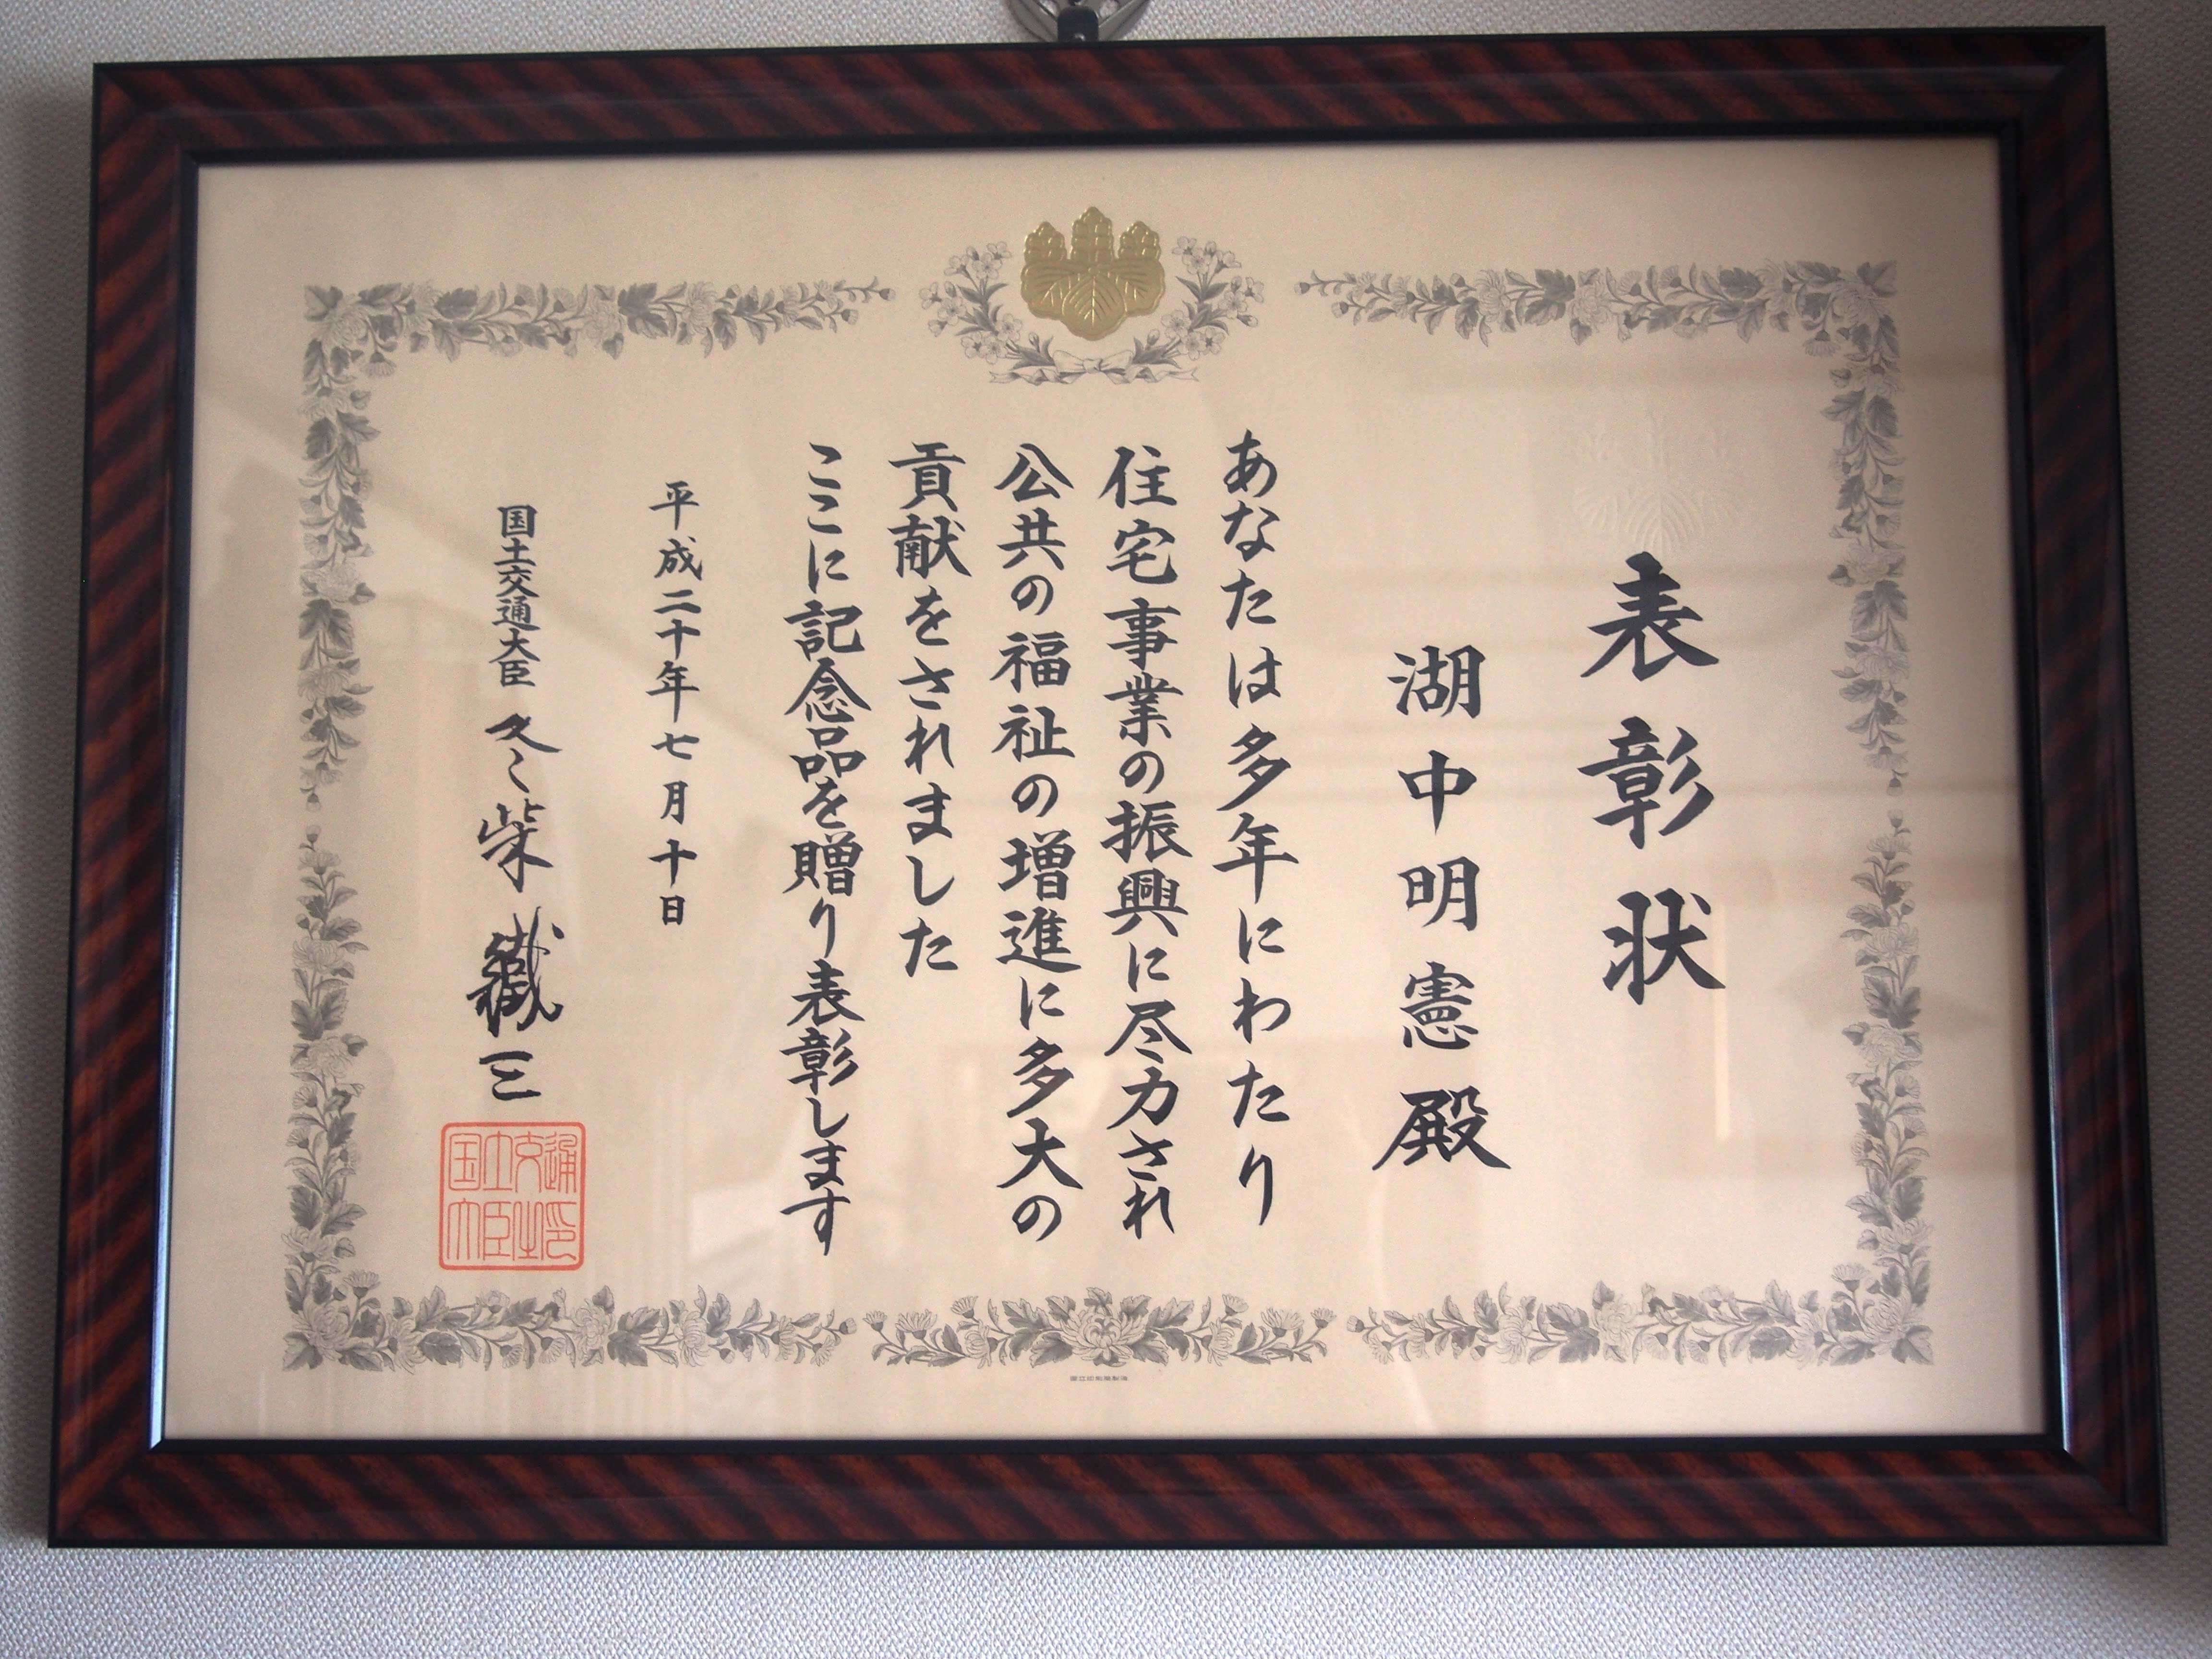 表彰状
湖中明憲殿
あなたは多年にわたり
住宅事業の振興に尽力され
公共の福祉の増進に多大の
貢献をされました
ここに記念品を贈り表彰します
平成二十年七月十日
国土交通大臣 冬柴鐵三
国土交通大臣之印
国立印刷局製造